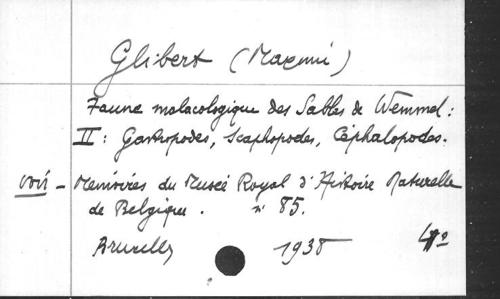 Glibert (Maxime)
Faune malacologique des Sables de Wemmel :
II : Gastropodes, Scaphopodes, Céphalopodes.
voir - Mémoires du Musée Royal d'Histoire Naturelle
de Belgique. n° 85.
Bruxelles 1938 4°